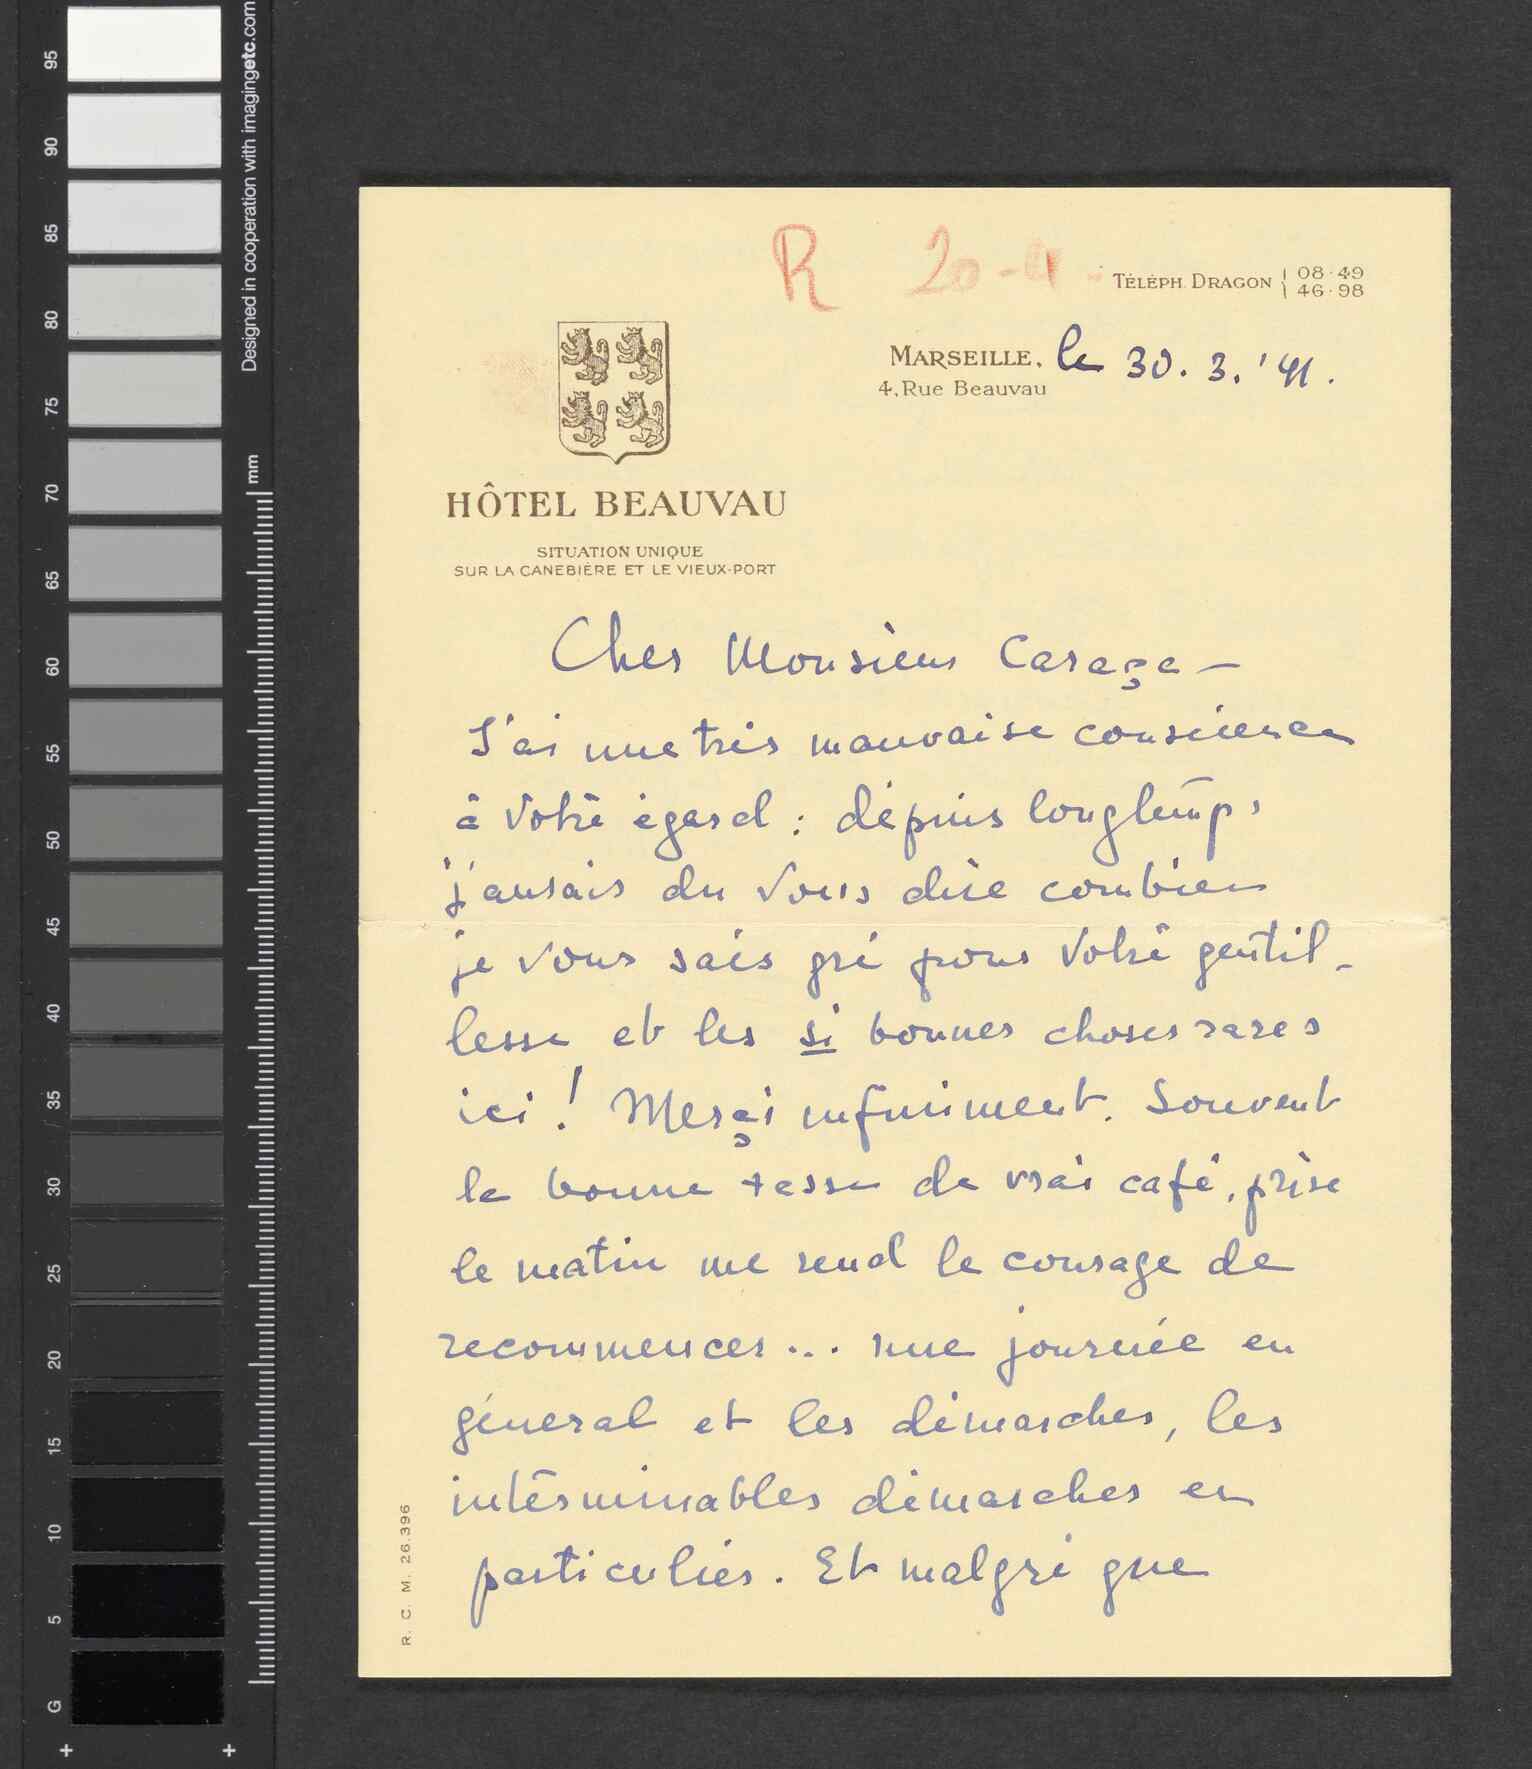 R 20-4
TÉLÉPH. DRAGON 08·49
46·98
MARSEILLE, le 30. 3. '41.
4, Rue Beauvau
HÔTEL BEAUVAU
SITUATION UNIQUE
SUR LA CANEBIÈRE ET LE VIEUX-PORT
Cher Monsieur Caraça —
J'ai une très mauvaise conscience
à votre égard : depuis longtemps
j'aurais du vous dire combien
je vous sais gré pour votre gentil-
lesse et les si bonnes choses rares
ici ! Merçi infiniment. Souvent
la bonne tasse de vrai café, prise
le matin me rend le courage de
recommencer... une journée en
géneral et les démarches, les
intérminables démarches en
particulier. Et malgré que
R. C. M. 26.396
Designed in cooperation with imagingetc.com
mm
95
90
85
80
75
70
65
60
55
50
45
40
35
30
25
20
15
10
5
G